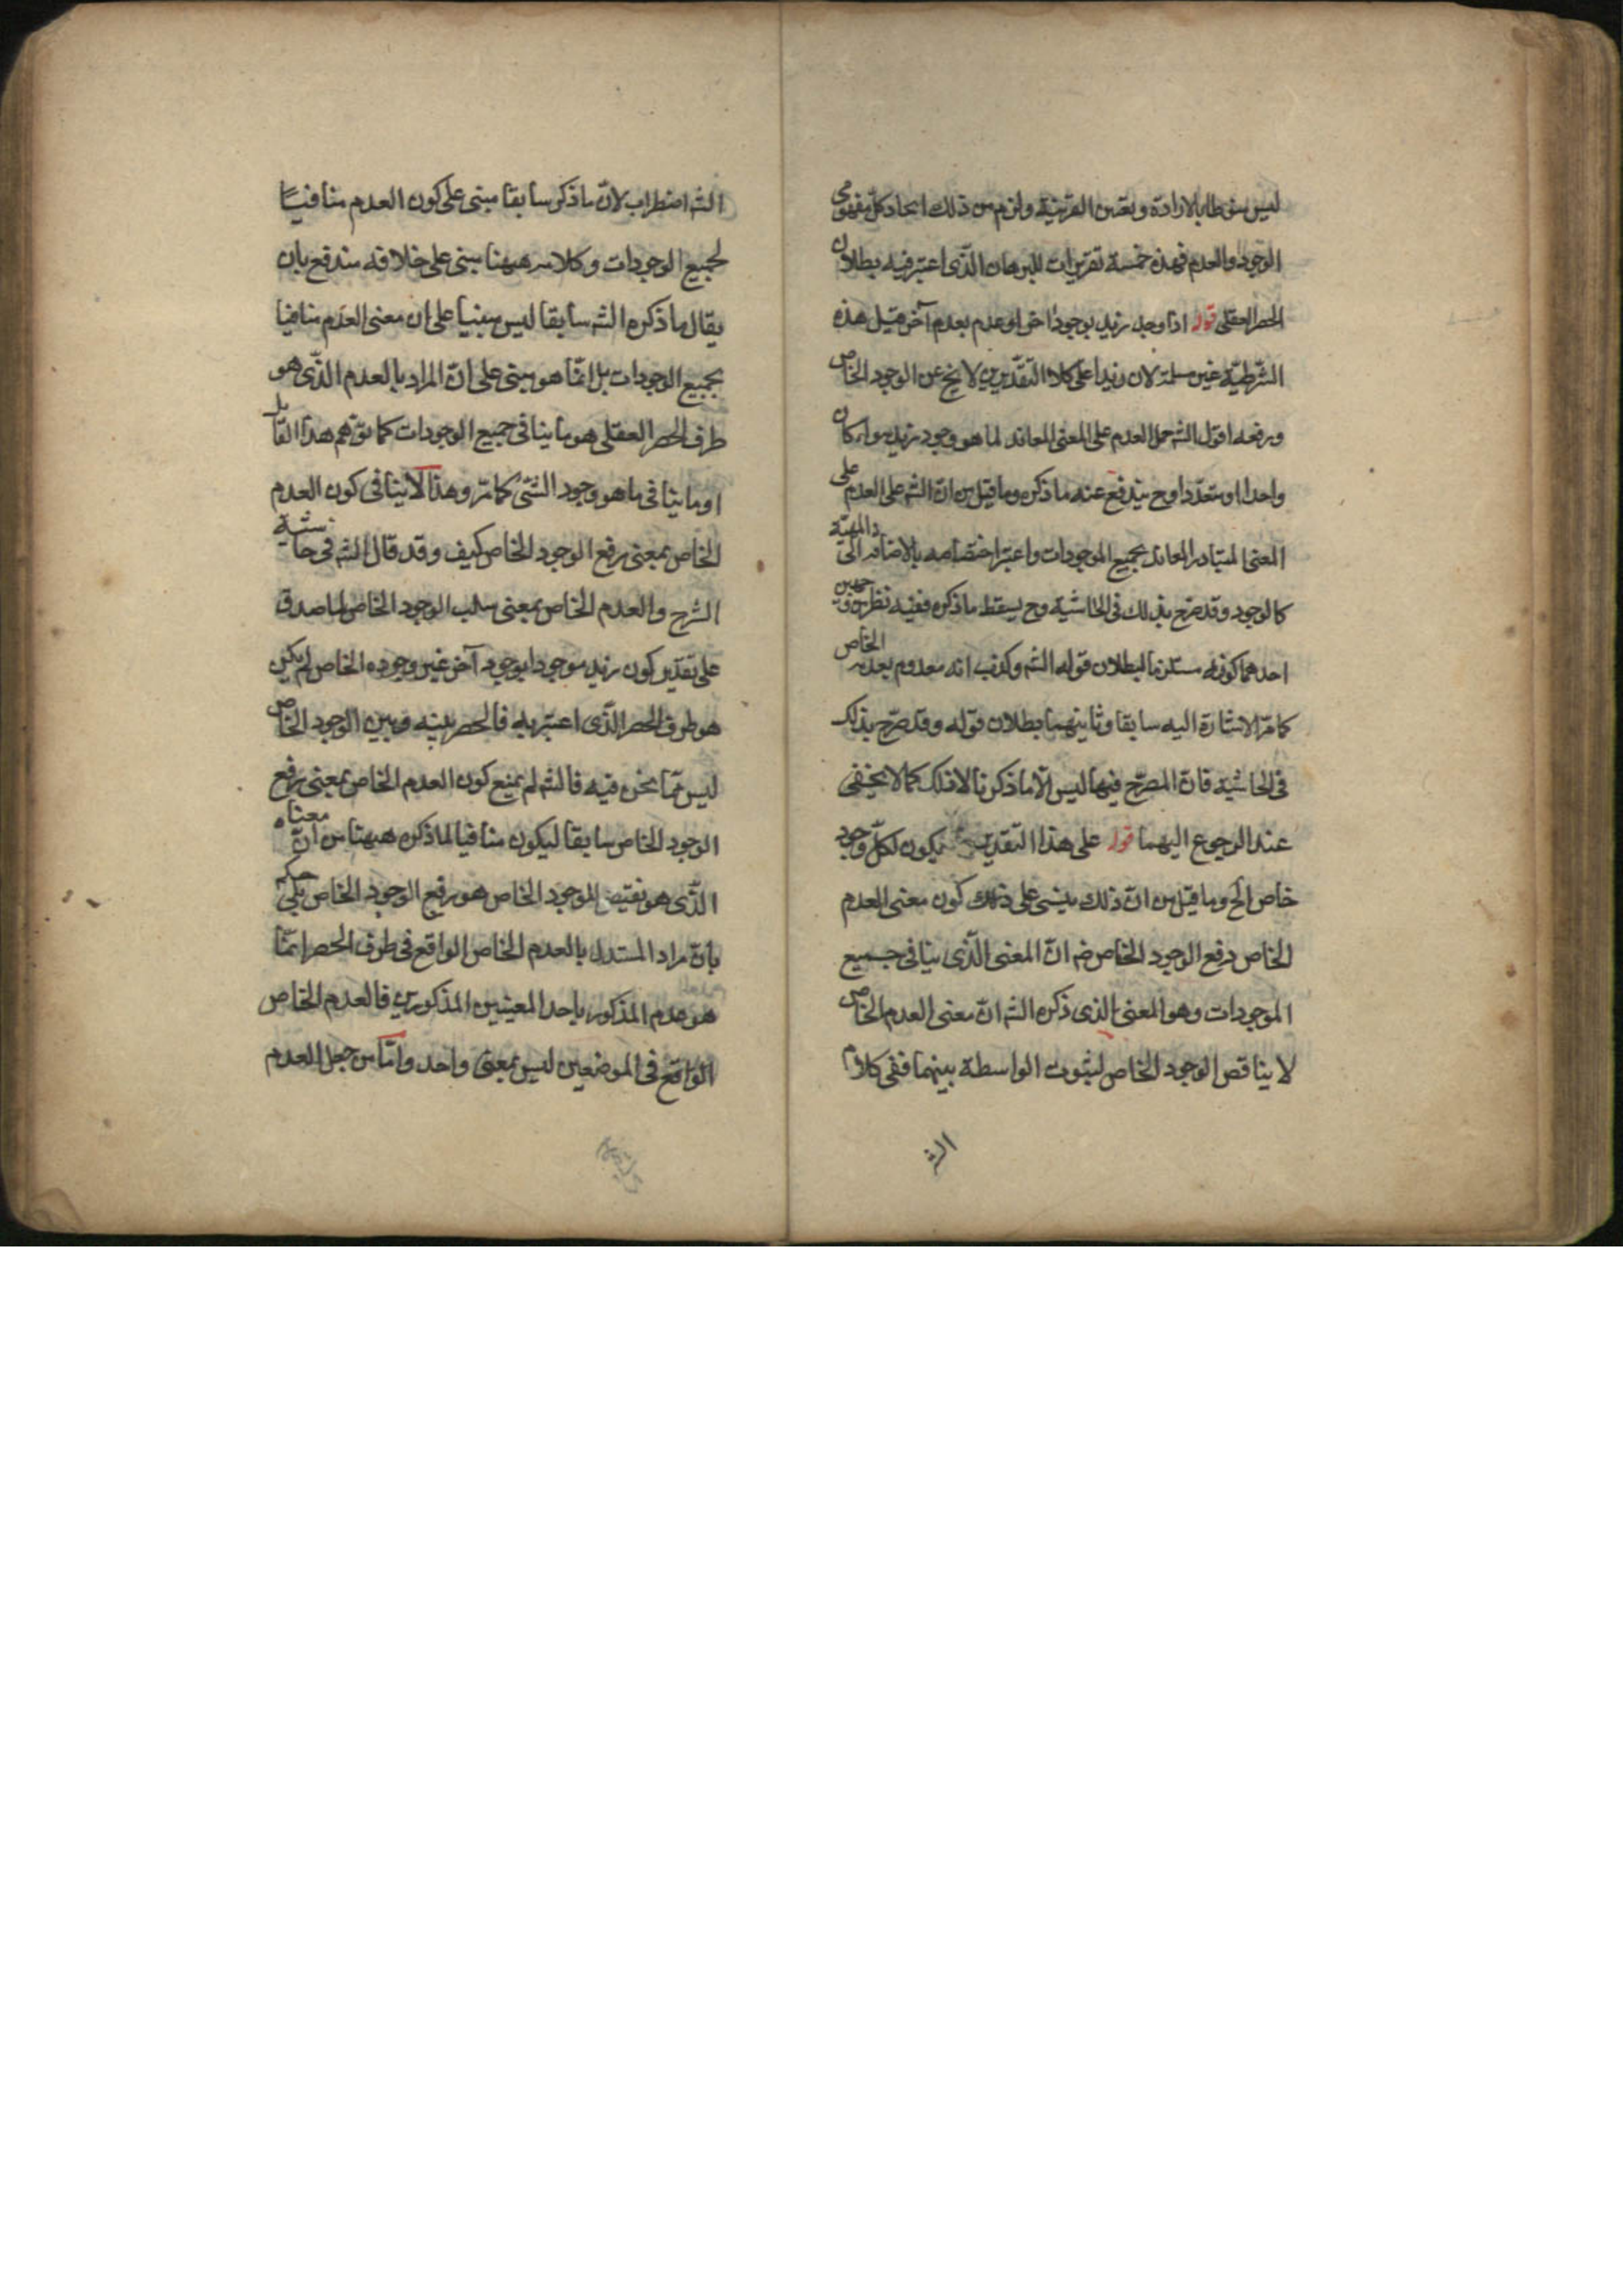 ليس منوطا بالارادة وبعين القرينة ولزم من ذلك اتحاد كل مفهومى
الوجود والعدم فهذه خمسة تقريرات للبرهان الذى اعتبر فيه بطلان
الحصر العقلى قوله اذا وجد زيد بوجود اخر او عدم بعدم آخر قيل هذه
الشرطية غير مسلمة لان زيدا على كلا التقديرين لا يخ عن الوجود الخاص
ورفعه اقول الشه حمل العدم على المعنى المعاند لما هو وجود زيد سواء كان
واحدا او متعددا وح يندفع عنه ما ذكره وما قيل من ان الشه على العدم على
المعنى المتبادر المعاند بجميع الموجودات واعتبر اختصاصه بالاضافه الى المهية
كالوجود وقد صرح بذلك فى الحاشية وح يسقط ما ذكره ففيه نظر من وجهين
احدهما كونه مستلزما لبطلان قوله الشه وكذب انه معدوم بعدمه الخاص
كما مر الاشارة اليه سابقا وثانيهما بطلان قوله وقد صرح بذلك
فى الحاشية فان المصرح فيها ليس الا ما ذكرنا لا ذلك كما لا يخفى
عند الرجوع اليهما قوله على هذا التقدير يكون لكل وجود
خاص الخ وما قيل من ان ذلك يبتنى على كون معنى العدم
الخاص رفع الوجود الخاص ضه ان المعنى الذى ينافى جميع
الموجودات وهو المعنى الذى ذكره الشه ان معنى العدم الخاص
لا يناقض الوجود الخاص لثبوت الواسطة بينهما ففى كلام
الشه
الشه اضطراب لان ما ذكر سابقا مبنى على كون العدم منافيا
لجميع الوجودات وكلامه ههنا مبنى على خلافه مندفع بان
يقال ما ذكره الشه سابقا ليس مبنيا على ان معنى العدم منافيا
بجميع الوجودات بل انما هو مبنى على ان المراد بالعدم الذى هو
طرف الحصر العقلى هو ما ينافى جميع الوجودات كما توهم هذا القايل
او ما ينافى ما هو وجود الشئ كما مر وهذا لا ينافى كون العدم
الخاص بمعنى رفع الوجود الخاص كيف وقد قال الشه فى حاشية
الشرح والعدم الخاص بمعنى سلب الوجود الخاص لما صدق
على تقدير كون زيد موجودا بوجود آخر غير وجوده الخاص لم يكن
هو طرف الحصر الذى اعتبر به فالحصر بينه وبين الوجود الخاص
ليس مما نحن فيه فالشه لم يمنع كون العدم الخاص بمعنى رفع
الوجود الخاص سابقا ليكون منافيا لما ذكره ههنا من ان معناه
الذى هو نقيض الوجود الخاص هو رفع الوجود الخاص بل حكم
بان مراد المستدل بالعدم الخاص الواقع فى طرف الحصر انما
هو عدم المذكور باحد المعنيين المذكورين فالعدم الخاص
الواقع فى الموضعين ليس بمعنى واحد واما من جعل العدم